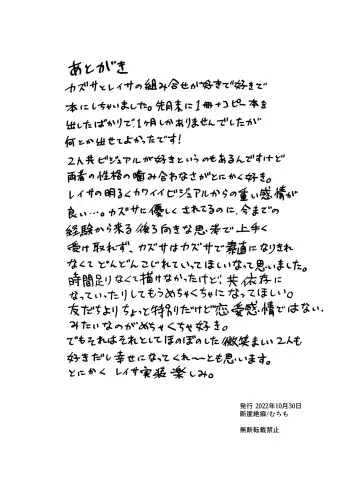 あとがき
カズサとレイサの組み合せが好きで好きで
本にしちゃいました。先月末に1冊+コピー本を
出したばかりで1ヶ月しかありませんでしたが
何とか出せてよかったです!
2人共ビジュアルが好きというのもあるんですけど
両者の性格の噛み合わなさがとにかく好き。
レイサの明るくカワイイビジュアルからの重い感情が
良い…。カズサに優しくされてるのに、今までの
経験から来る後ろ向きな思考で上手く
受け取れず、カズサはカズサで素直になりきれ
なくてどんどんこじれていってほしいなって思いました。
時間足りなくて描けなかったけど、共依存に
なっていったりしてもうめちゃくちゃになってほしい。
友だちよりちょっと特別だけど恋愛感情ではない、
みたいなのがめちゃくちゃ好き。
でもそれはそれとしてほのぼのした微笑ましい2人も
好きだし幸せになってくれ〜〜とも思います。
とにかくレイサ実装楽しみ。
発行 2022年10月30日
断崖絶癖/むちも
無断転載禁止